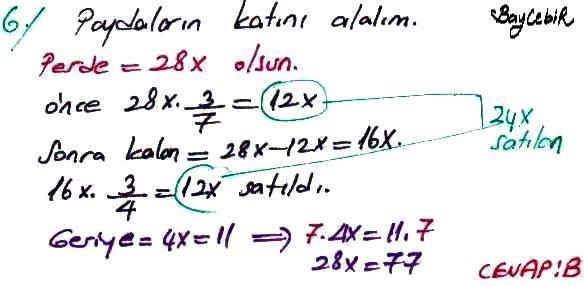 6) Paydaların katını alalım. BayCebiR
Perde = 28x olsun.
önce 28x. 3/7 = 12x
Sonra kalan = 28x-12x = 16x.
24x satılan
16x. 3/4 = 12x satıldı.
Geriye = 4x = 11 ⟹ 7.4x = 11.7
28x = 77
CEVAP:B